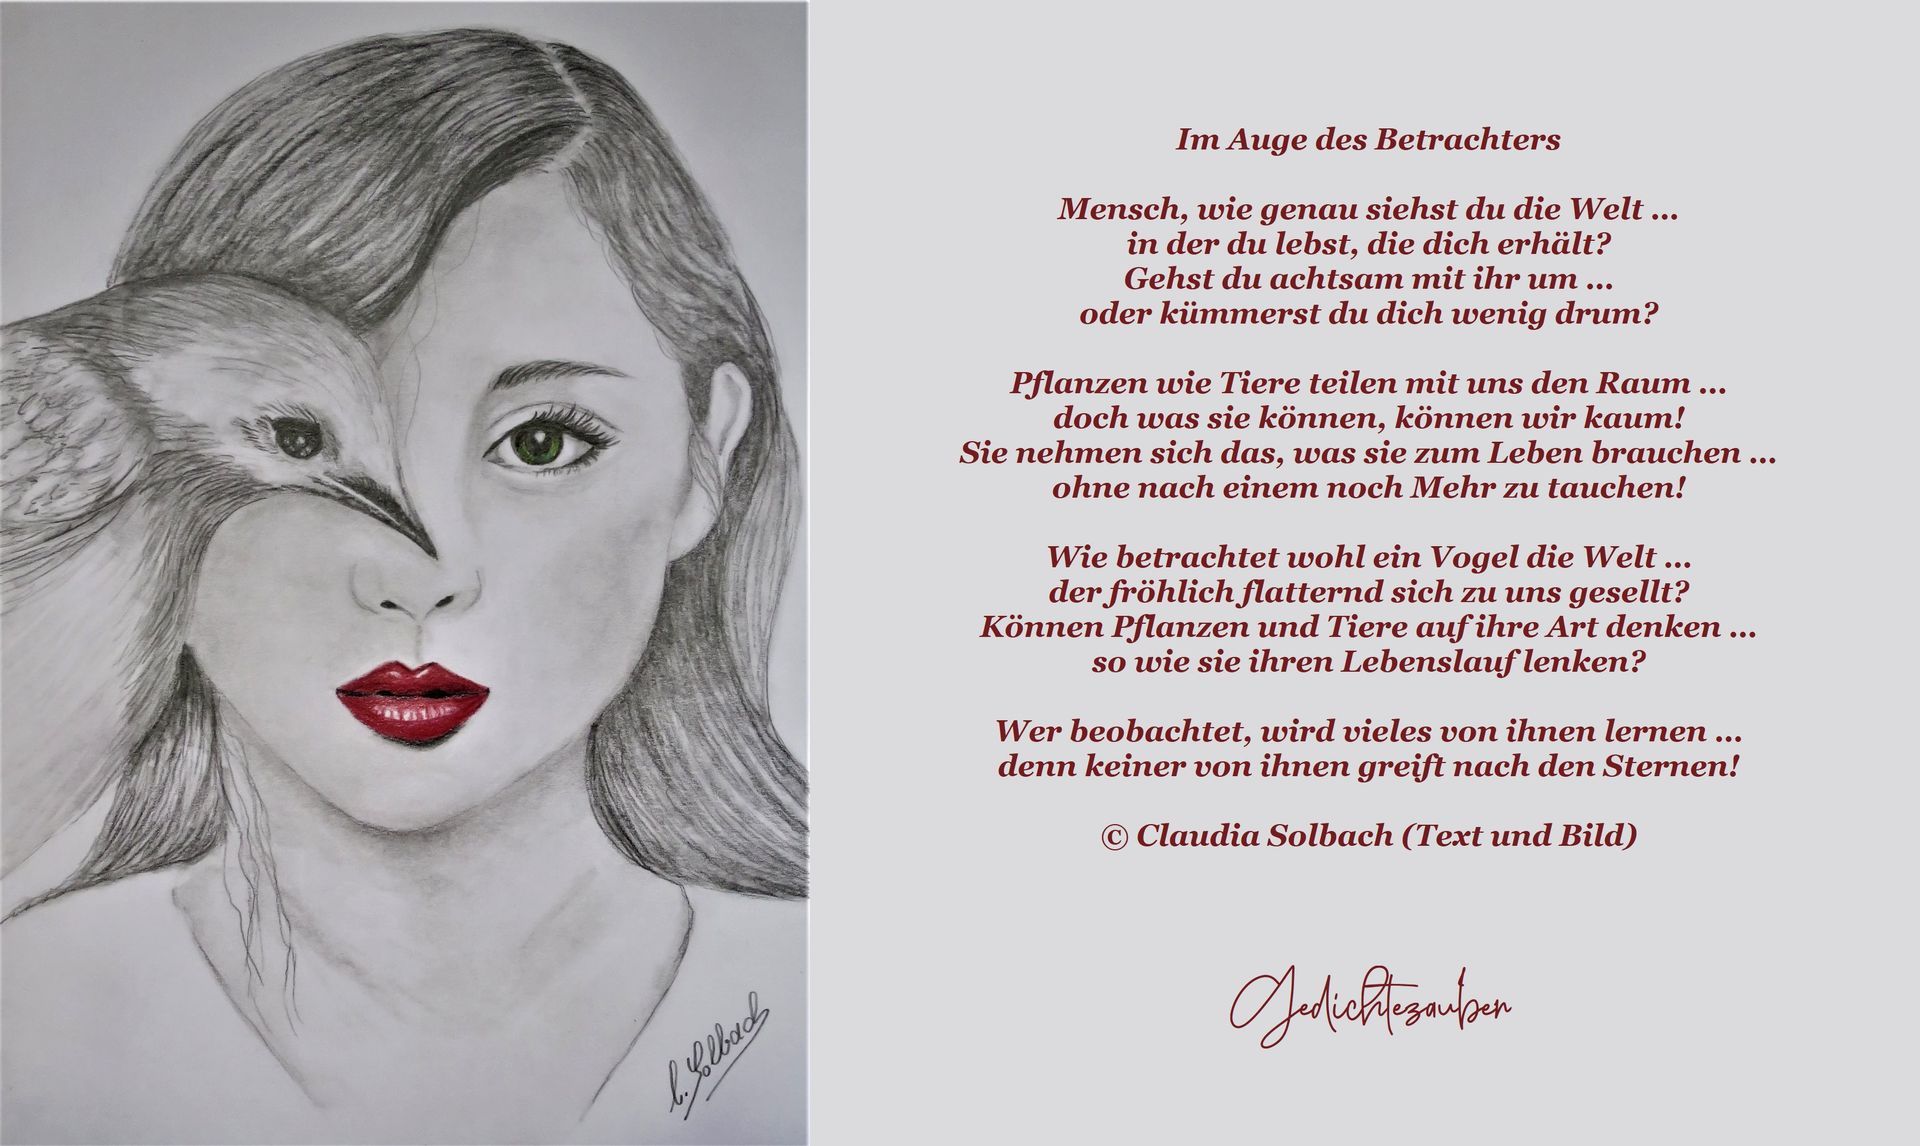 Im Auge des Betrachters
Mensch, wie genau siehst du die Welt ...
in der du lebst, die dich erhält?
Gehst du achtsam mit ihr um ...
oder kümmerst du dich wenig drum?
Pflanzen wie Tiere teilen mit uns den Raum ...
doch was sie können, können wir kaum!
Sie nehmen sich das, was sie zum Leben brauchen ...
ohne nach einem noch Mehr zu tauchen!
Wie betrachtet wohl ein Vogel die Welt ...
der fröhlich flatternd sich zu uns gesellt?
Können Pflanzen und Tiere auf ihre Art denken ...
so wie sie ihren Lebenslauf lenken?
Wer beobachtet, wird vieles von ihnen lernen ...
denn keiner von ihnen greift nach den Sternen!
© Claudia Solbach (Text und Bild)
Gedichtezauber
C. Solbach